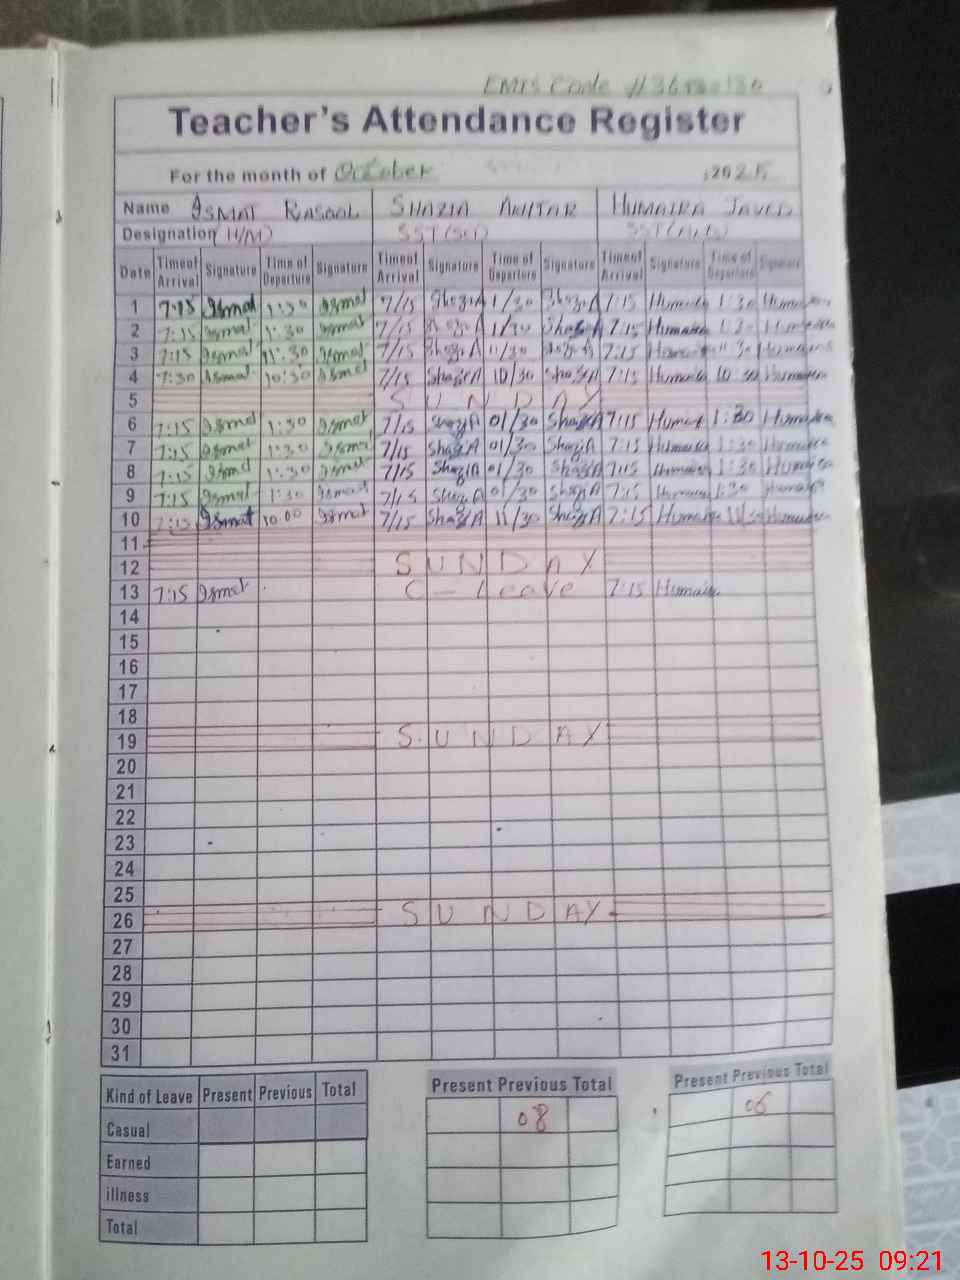 EMIS Code #
Teacher's Attendance Register
For the month of October ,2025
Name Ismat Rasool SHAZIA AKHTAR HUMAIRA JAVED
Designation (H/M) SST(Sci)
Date Time of Arrival Signature Time of Departure Signature Time of Arrival Signature Time of Departure Signature Time of Arrival Signature Time of Departure Signature
1 7:15 Ismat 1:30 Ismat 7/15 ShaziA 1/30 ShaziA 7:15 Humaira 1:30 Humaira
2 7:15 Ismat 1:30 Ismat 7/15 ShaziA 1/30 ShaziA 7:15 Humaira 1:30 Humaira
3 7:15 Ismat 11:30 Ismat 7/15 ShaziA 11/30 ShaziA 7:15 Humaira 11:30 Humaira
4 7:30 Ismat 10:30 Ismat 7/15 ShaziA 10/30 ShaziA 7:15 Humaira 10:30 Humaira
5 SUNDAY
6 7:15 Ismat 1:30 Ismat 7/15 ShaziA 01/30 ShaziA 7:15 Humaira 1:30 Humaira
7 7:15 Ismat 1:30 Ismat 7/15 ShaziA 01/30 ShaziA 7:15 Humaira 1:30 Humaira
8 7:15 Ismat 1:30 Ismat 7/15 ShaziA 01/30 ShaziA 7:15 Humaira 1:30 Humaira
9 7:15 Ismat 1:30 Ismat 7/15 ShaziA 01/30 ShaziA 7:15 Humaira 1:30 Humaira
10 7:15 Ismat 10:00 Ismat 7/15 ShaziA 11/30 ShaziA 7:15 Humaira Humaira
11
12 SUNDAY
13 7:15 Ismat C-Leave 7:15 Humaira
14
15
16
17
18
19 SUNDAY
20
21
22
23
24
25
26 SUNDAY
27
28
29
30
31
Kind of Leave Present Previous Total Present Previous Total Present Previous Total
Casual 08 06
Earned
illness
Total
13-10-25 09:21